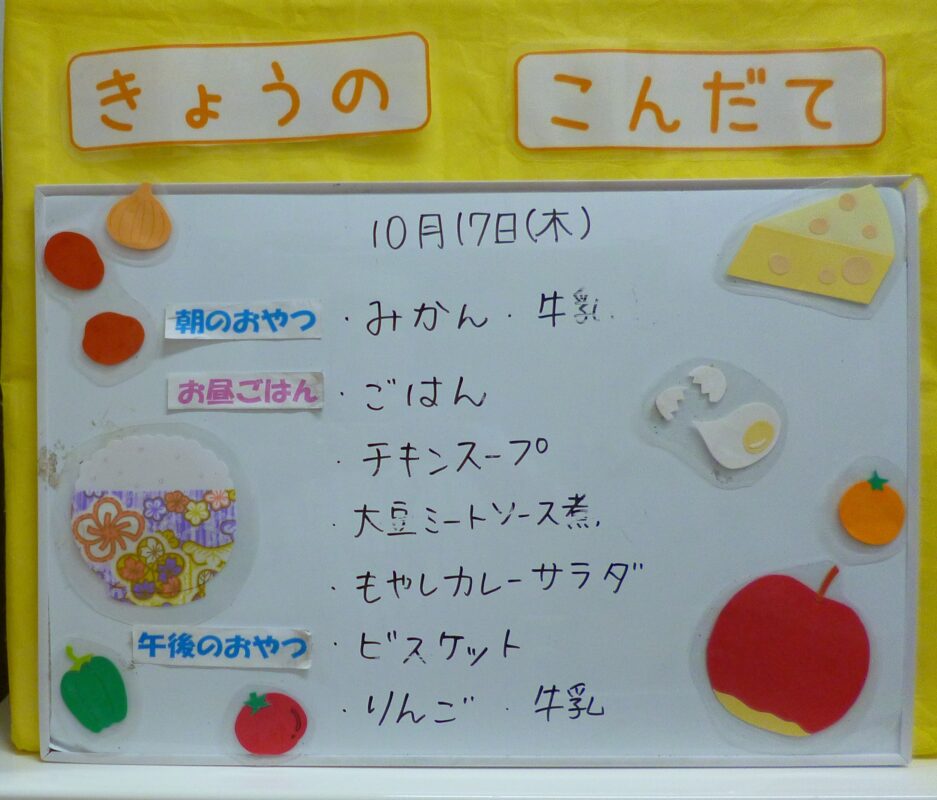 きょうの こんだて
10月17日(木)
朝のおやつ ・みかん・牛乳
お昼ごはん ・ごはん
・チキンスープ
・大豆ミートソース煮
・もやしカレーサラダ
午後のおやつ ・ビスケット
・りんご・牛乳